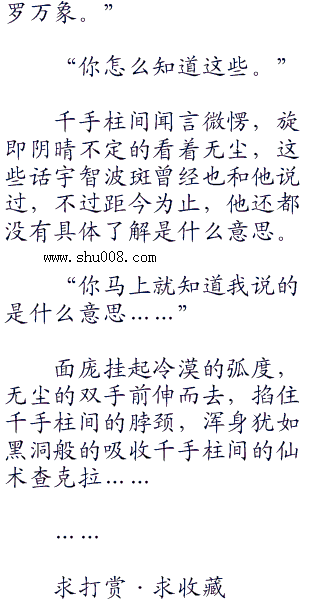 罗万象。”
“你怎么知道这些。”
千手柱间闻言微愣，旋
即阴晴不定的看着无尘，这
些话宇智波斑曾经也和他说
过，不过距今为止，他还都
没有具体了解是什么意思。
www.shu008.com
“你马上就知道我说的
是什么意思……”
面庞挂起冷漠的弧度，
无尘的双手前伸而去，掐住
千手柱间的脖颈，浑身犹如
黑洞般的吸收千手柱间的仙
术查克拉……
……
求打赏·求收藏